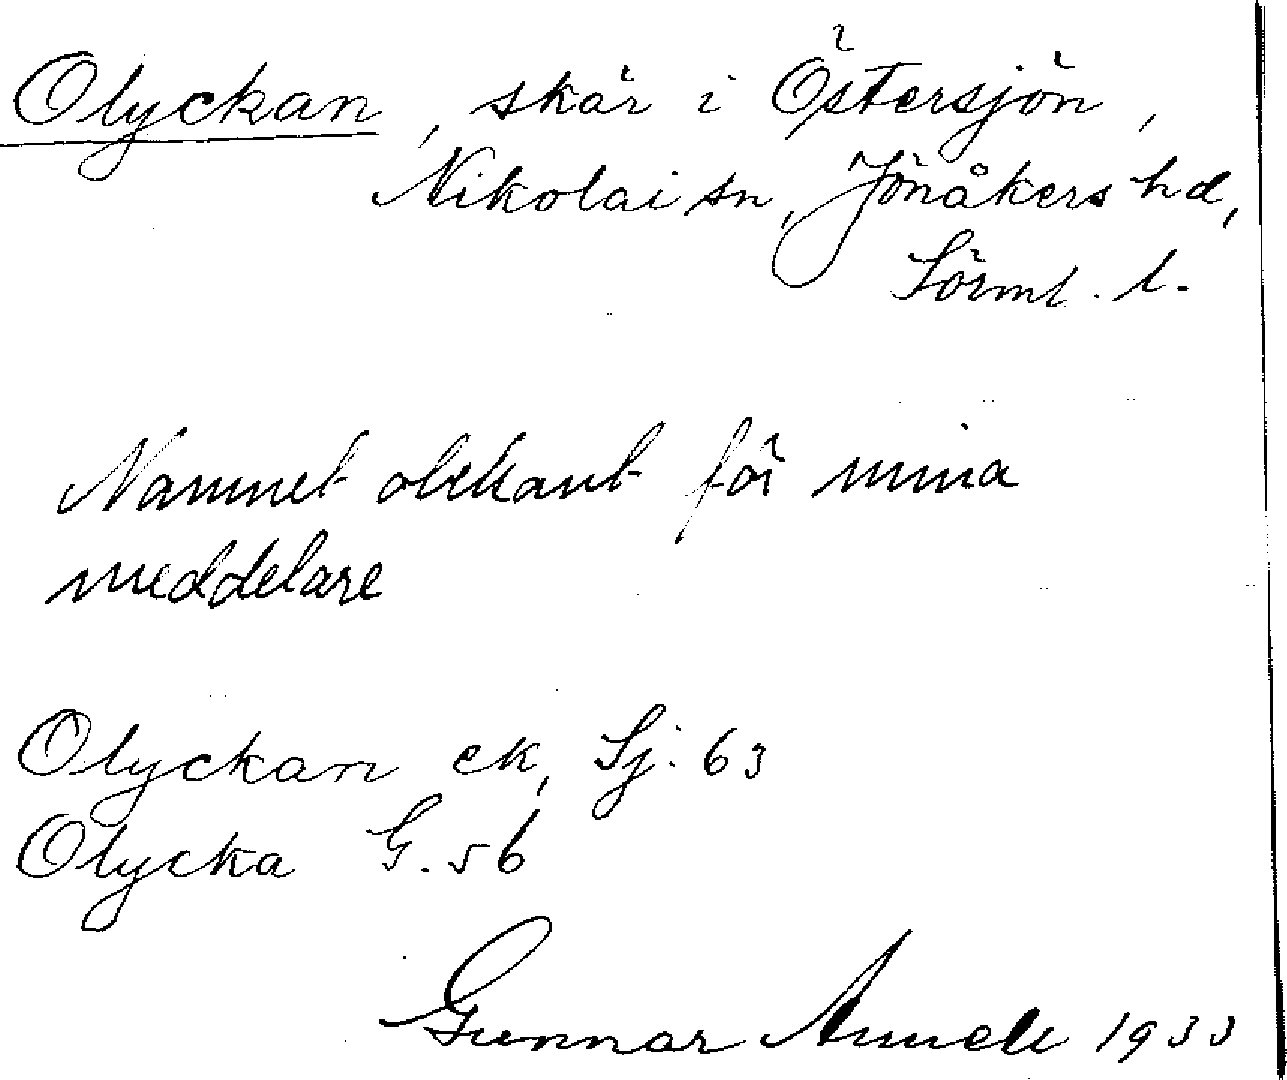 Olyckan, skär i Östersjön,
Nikolai sn, Jönåkers hd,
Sörml. l.
Namnet obekant för mina
meddelare
Olyckan ek, Sj. 63
Olycka G. 56
Gunnar Annell 1933